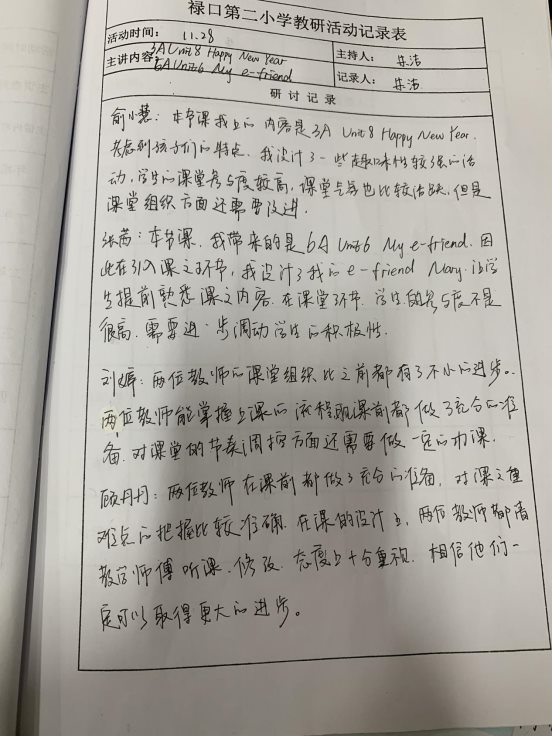 禄口第二小学教研活动记录表
活动时间： 11.28
主讲内容： 3A Unit 8 Happy New Year
6A Unit 6 My e-friend
主持人： 朱洁
记录人： 朱洁
研 讨 记 录
俞小慧：本节课我上的内容是3A Unit 8 Happy New Year.
考虑到孩子们的特点，我设计了一些趣味性较强的活
动，学生的课堂参与度较高，课堂气氛也比较活跃，但是
课堂组织方面还需要改进.
张茜：本节课，我带来的是6A Unit 6 My e-friend. 因
此在引入课文环节，我设计了我的e-friend Mary. 让学
生提前熟悉课文内容. 在课堂环节，学生的参与度不是
很高. 需要进一步调动学生的积极性.
刘婷：两位教师的课堂组织比之前都有了不小的进步。
两位教师能掌握上课的流程，课前都做了充分的准
备. 对课堂的节奏调控方面还需要做一定的功课.
顾丹丹：两位教师在课前都做了充分的准备，对课文重
难点的把握比较准确. 在课的设计上，两位教师都请
教了师傅听课、修改. 态度上十分重视. 相信他们一
定可以取得更大的进步。